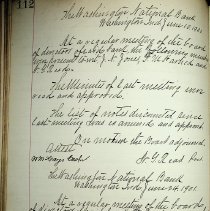 112
The Washington National Bank
Washington Ind June 10. 1901
At a regular meeting of the board
of directors of said bank the following members
were present to wit J. W. Jones, P. R. Wadsick and
H. G. Read.
The Minutes of last meeting were
read and approved.
The list of notes discounted since
last meeting read as examined and approved
On motion the Board adjourned.
Attest
Cash
H. G. Read Pres
The Washington National Bank
Washington Ind June 24. 1901.
At a regular meeting of the board